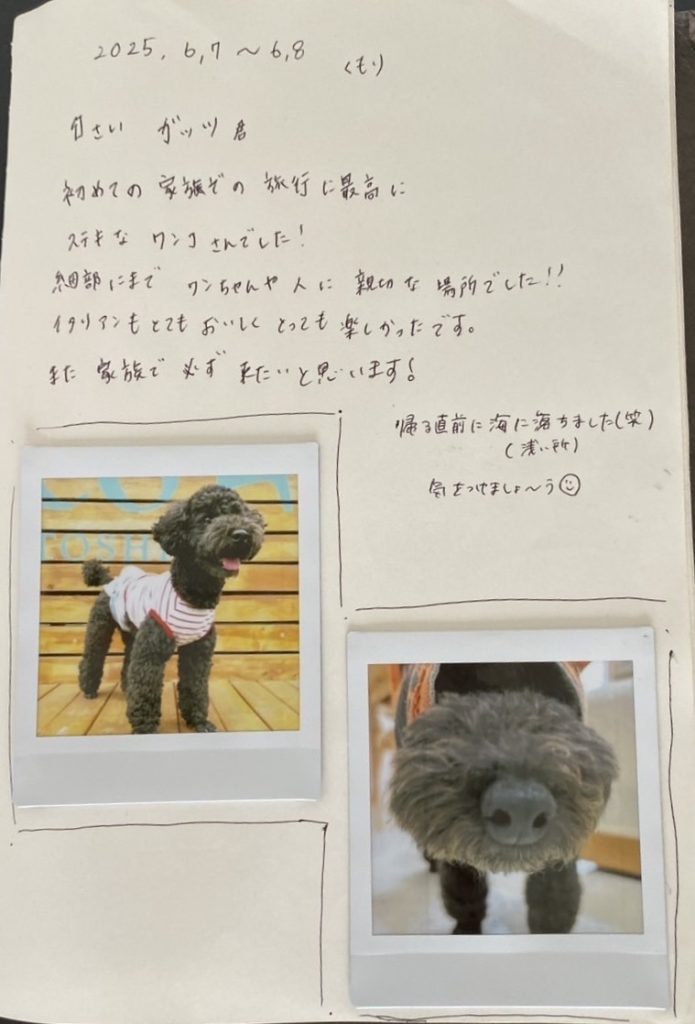 2025. 6,7 〜 6,8 くもり
白さい ガッツ君
初めての 家族での 旅行に最高に
ステキな ワンコ さんでした!
細部にまで ワンちゃんや 人に 親切な 場所でした!!
イタリアンもとても おいしく とっても 楽しかったです。
また 家族で 必ず 来たいと思います!
帰る直前に海に落ちました(笑)
(浅い所)
気をつけましょ〜う
TOSHI